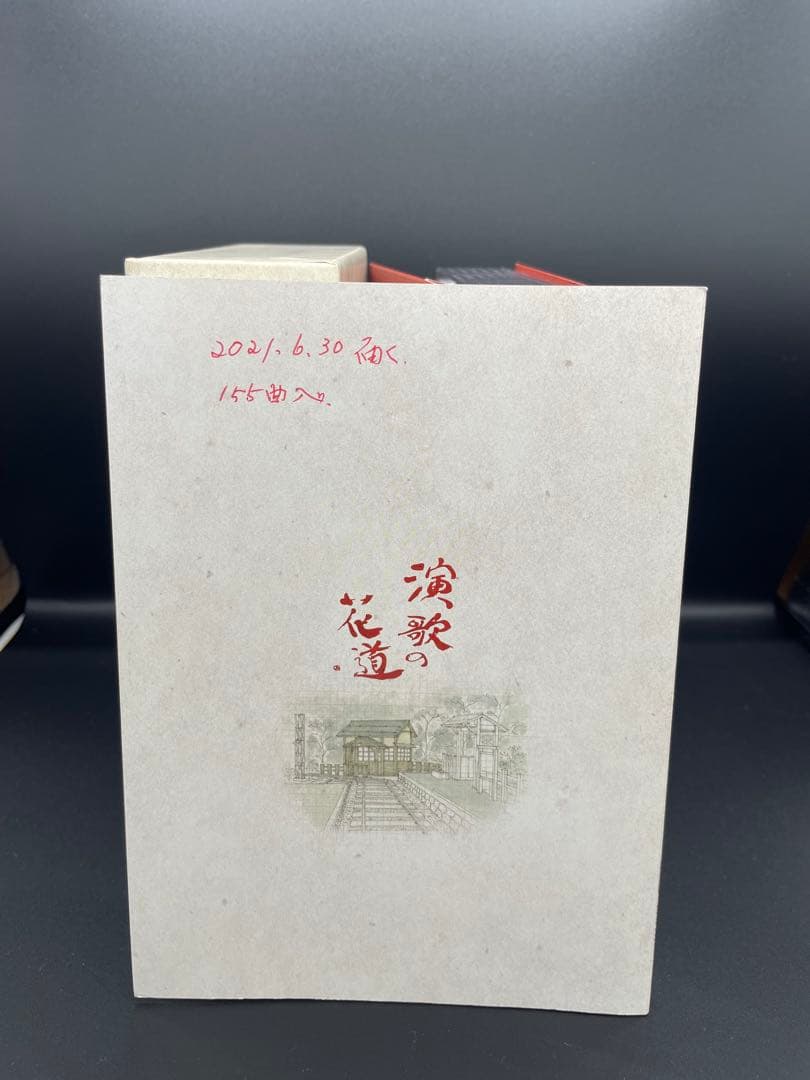 2021.6.30 届く.
155曲入り.
演歌の
花道。